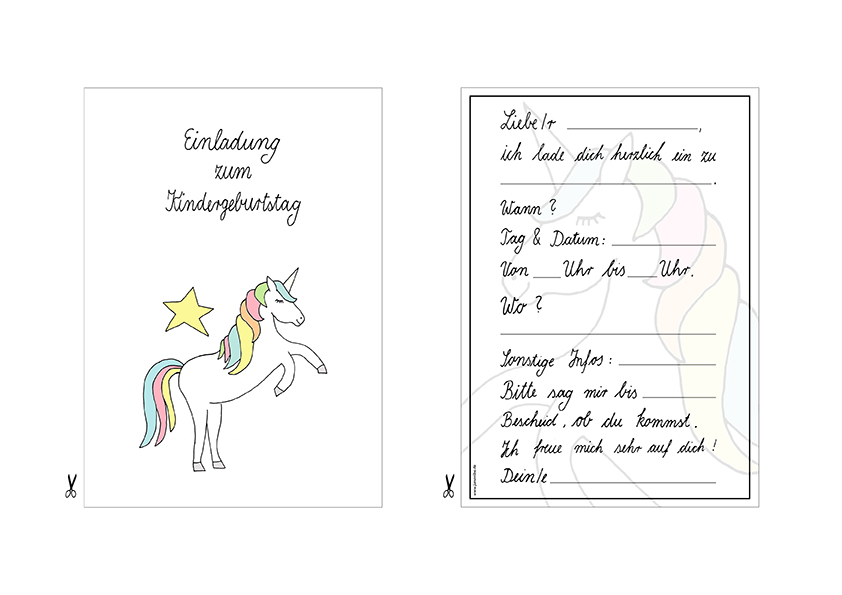 Einladung
zum
Kindergeburtstag
Liebe/r ____________,
ich lade dich herzlich ein zu
____________.
Wann?
Tag & Datum: ____________
Von ____ Uhr bis ____ Uhr.
Wo?
____________
Sonstige Infos: ____________
Bitte sag mir bis ____________
Bescheid, ob du kommst.
Ich freue mich sehr auf dich!
Dein/e ____________